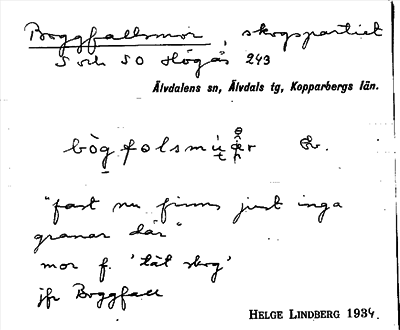 Boggfallsmor, skogspartiet
S och SO Högås 243
Älvdalens sn, Älvdals tg, Kopparbergs län.
bògfolsmu̇er
"fast nu finns just inga
granar där"
mor f. 'tät skog'
jfr Boggfall
HELGE LINDBERG 1934.